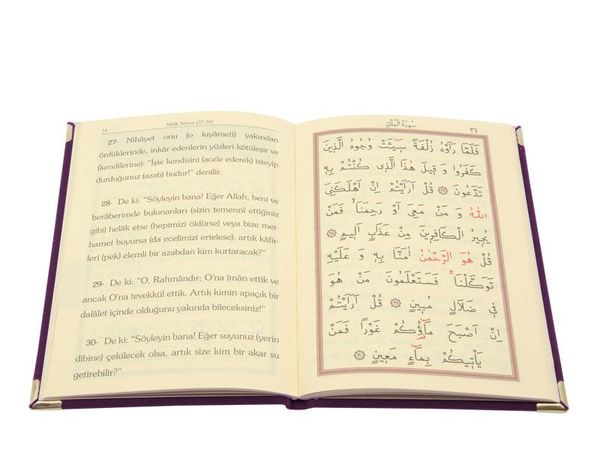 34
Mülk Sûresi (27-30)
27- Nihâyet onu (o kıyameti) yakından
ördüklerinde, inkâr edenlerin yüzleri kötüleşir ve
(kendilerine): “İşte kendisini (acele ederek) isteyip
durduğunuz (azab) budur!” denilir.
28- De ki: “Söyleyin bana! Eğer Allah, beni ve
berâberimde bulunanları (sizin temennî ettiğiniz
gibi) helâk etse (hepimizi öldürse) veya bize mer-
hamet buyursa (da ecelimizi ertelese), artık kâfir-
leri (pek) elemli bir azabdan kim kurtaracak?”
29- De ki: “O, Rahmândır; O'na îman ettik ve
ancak O'na tevekkül ettik. Artık kimin apaçık bir
dalâlet içinde olduğunu yakında bileceksiniz!”
30- De ki: “Söyleyin bana! Eğer suyunuz (yerin
dibine) çekilecek olsa, artık size kim bir akar su
getirebilir?”
سُورَةُ الْمُلْكِ
٣٤
فَلَمَّا رَاَوْهُ زُلْفَةً سٖٓيـَٔتْ وُجُوهُ الَّذٖينَ
كَفَرُوا وَ قٖيلَ هٰذَا الَّذٖى كُنْتُمْ بِهٖ
تَدَّعُونَ ۞ قُلْ اَرَاَيْتُمْ اِنْ اَهْلَكَنِىَ
اللّٰهُ وَ مَنْ مَعِىَ اَوْ رَحِمَنَاۙ فَمَنْ
يُجٖيرُ الْكَافِرٖينَ مِنْ عَذَابٍ اَلٖيمٍ ۞
قُلْ هُوَ الرَّحْمٰنُ اٰمَنَّا بِهٖ وَ عَلَيْهِ
تَوَكَّلْنَاۚ فَسَتَعْلَمُونَ مَنْ هُوَ
فٖى ضَلَالٍ مُبٖينٍ ۞ قُلْ اَرَاَيْتُمْ
اِنْ اَصْبَحَ مَٓاؤُكُمْ غَوْرًا فَمَنْ
يَاْتٖيكُمْ بِمَٓاءٍ مَعٖينٍ ۞